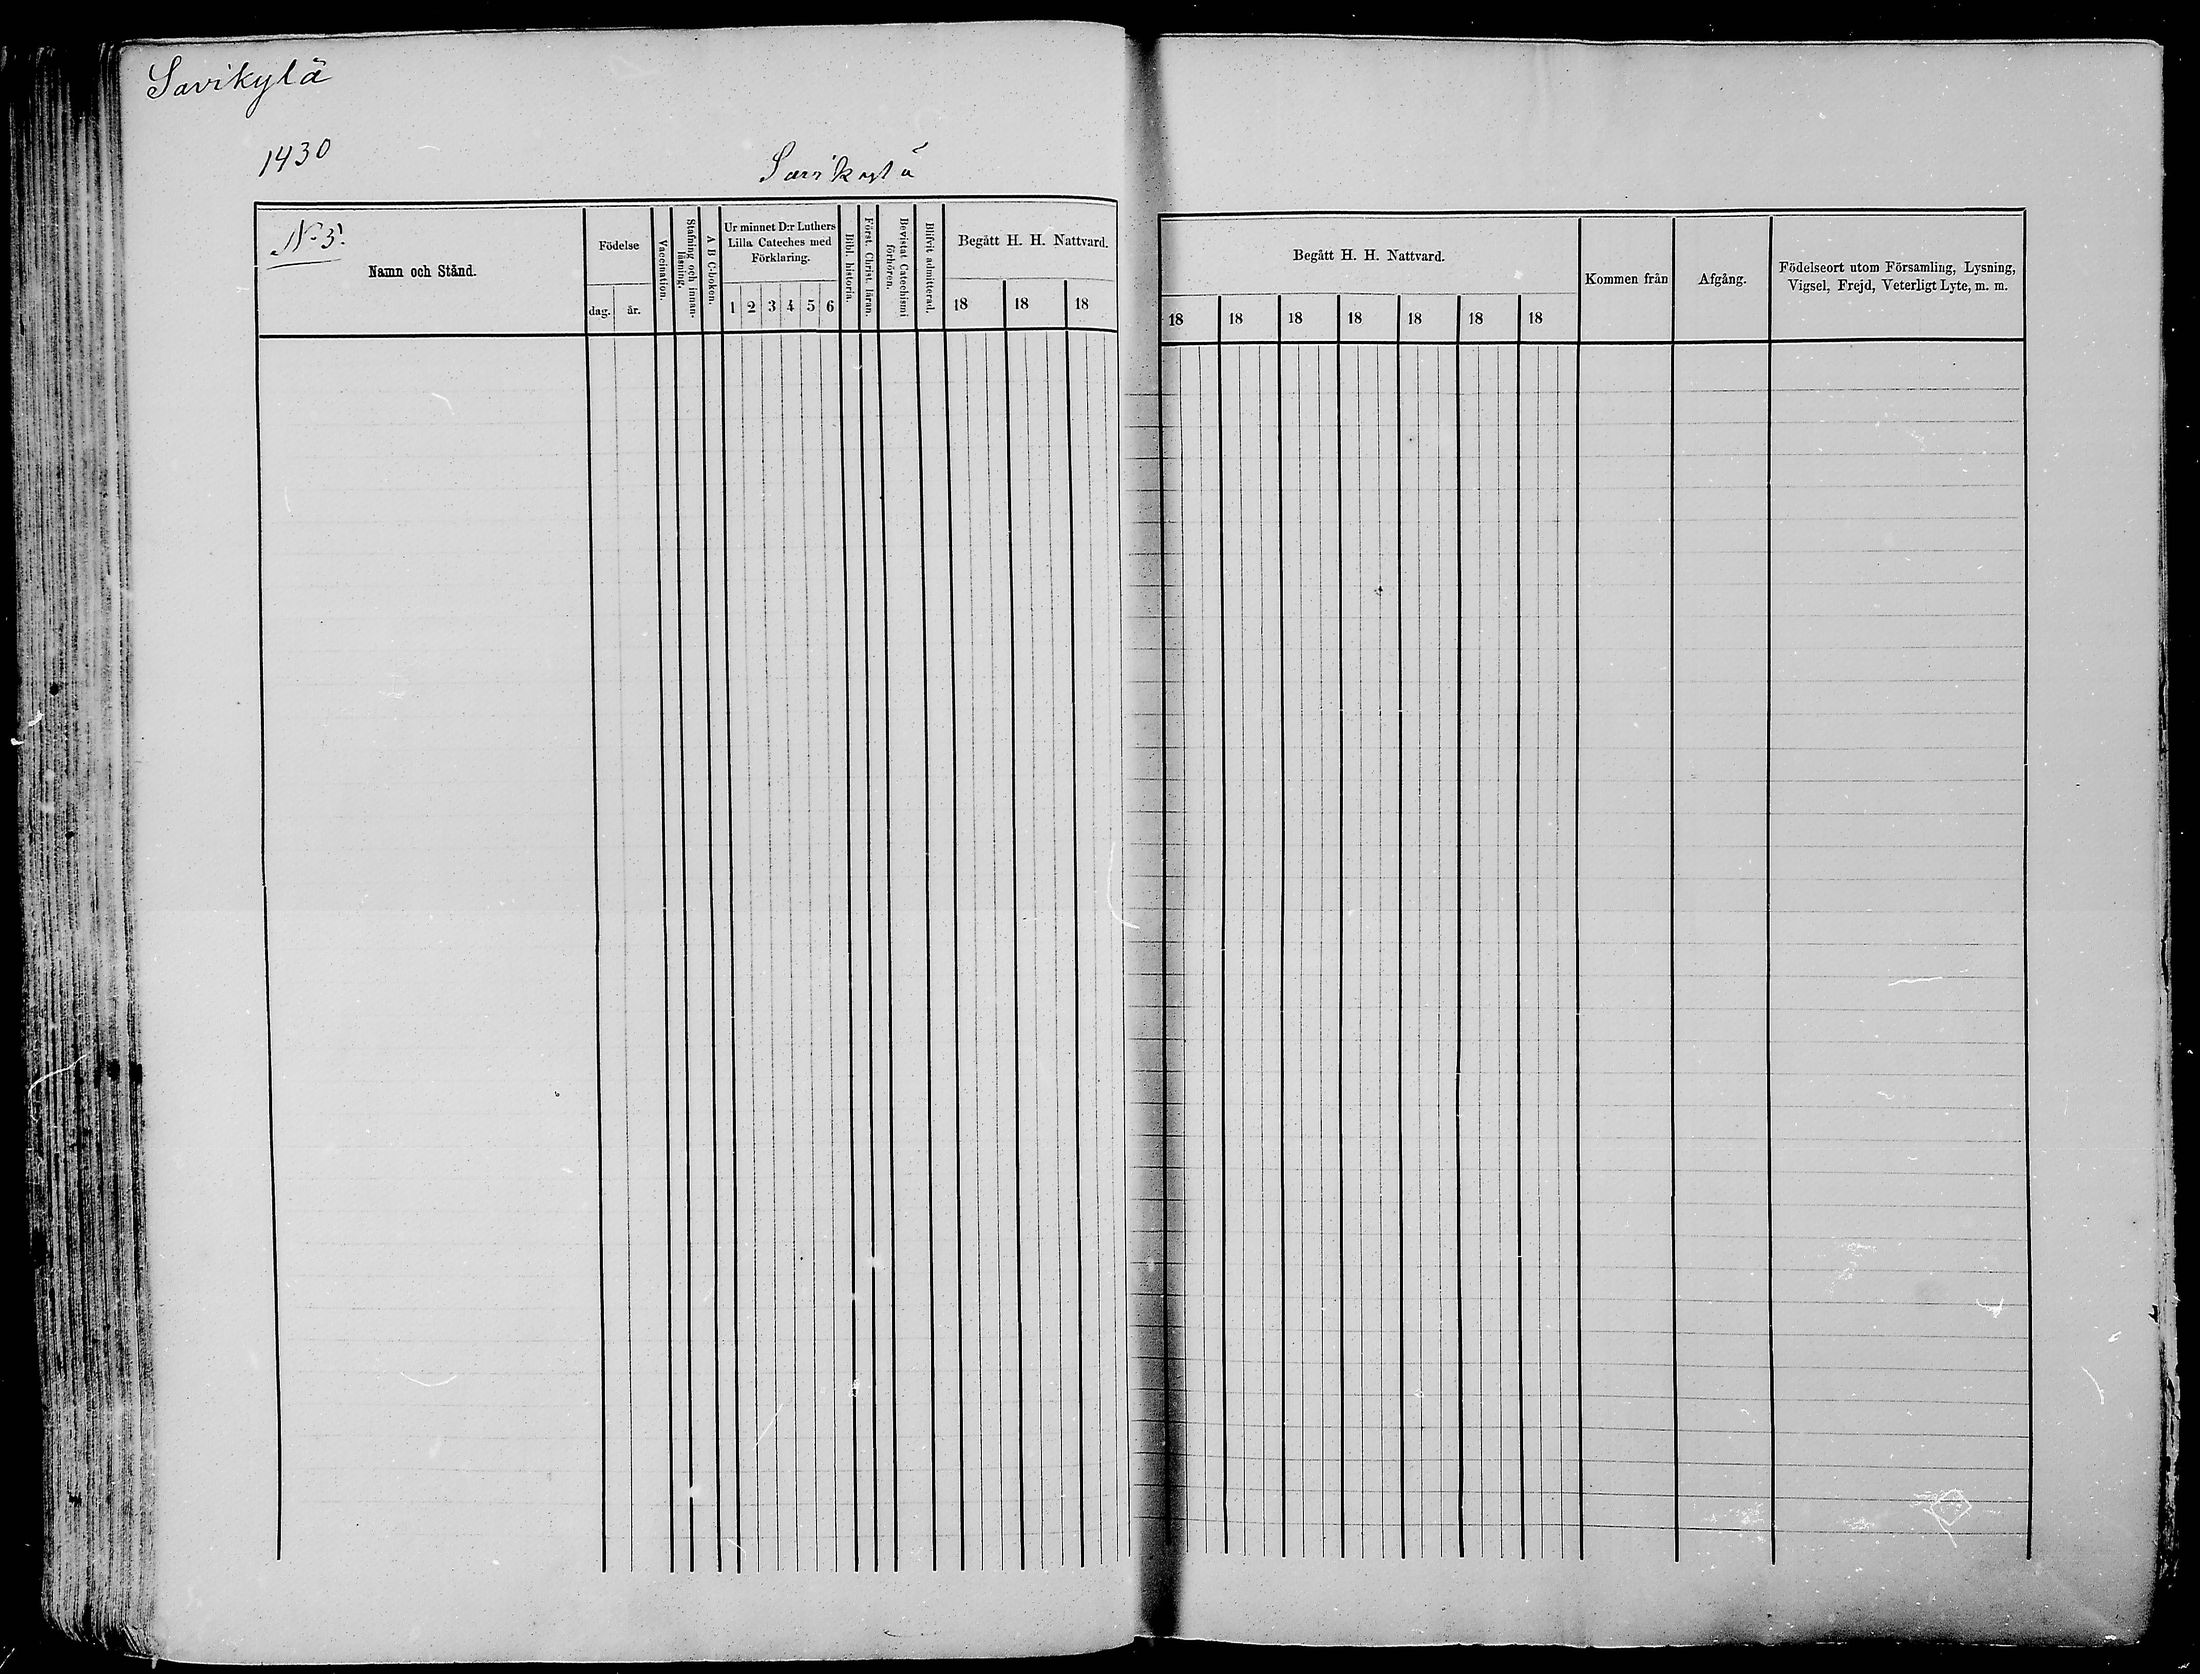 Savikylä
1430
Savikylä
No 5.
Namn och Stånd.
Födelse
dag.
år.
Vaccination.
Stafning och innan-
läsning.
A B C-boken.
Ur minnet D:r Luthers
Lilla Cateches med
Förklaring.
1 2 3 4 5 6
Bibl. historia.
Först. Christ. läran.
Bevistat Catechismi
förhören.
Blifvit admitterad.
Begått H. H. Nattvard.
18 18 18
Begått H. H. Nattvard.
18 18 18 18 18 18 18
Kommen från
Afgång.
Födelseort utom Församling, Lysning,
Vigsel, Frejd, Veterligt Lyte, m. m.